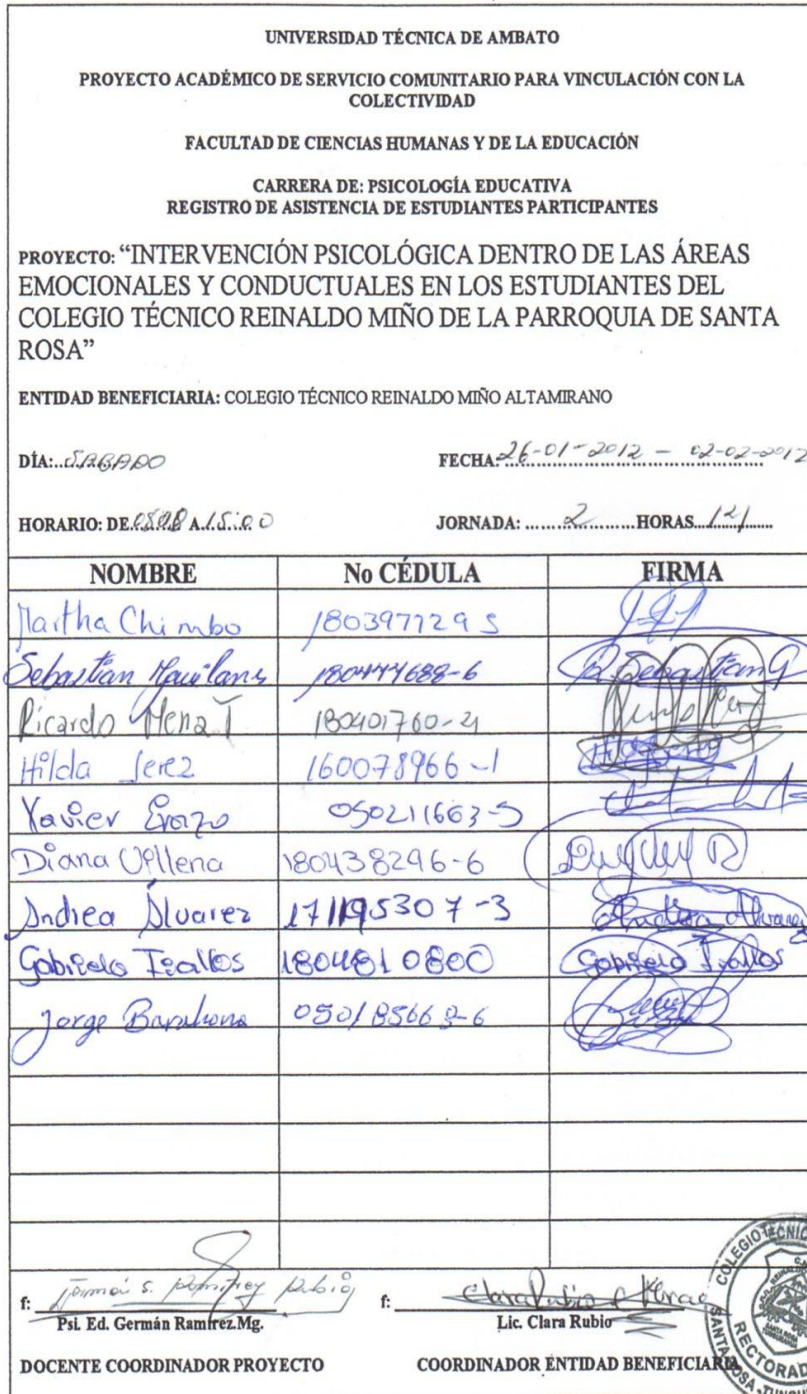 UNIVERSIDAD TÉCNICA DE AMBATO
PROYECTO ACADÉMICO DE SERVICIO COMUNITARIO PARA VINCULACIÓN CON LA
COLECTIVIDAD
FACULTAD DE CIENCIAS HUMANAS Y DE LA EDUCACIÓN
CARRERA DE: PSICOLOGÍA EDUCATIVA
REGISTRO DE ASISTENCIA DE ESTUDIANTES PARTICIPANTES
PROYECTO: “INTERVENCIÓN PSICOLÓGICA DENTRO DE LAS ÁREAS
EMOCIONALES Y CONDUCTUALES EN LOS ESTUDIANTES DEL
COLEGIO TÉCNICO REINALDO MIÑO DE LA PARROQUIA DE SANTA
ROSA”
ENTIDAD BENEFICIARIA: COLEGIO TÉCNICO REINALDO MIÑO ALTAMIRANO
DÍA: SABADO FECHA: 26-01-2012 - 02-02-2012
HORARIO: DE A 15:00 JORNADA: 2 HORAS
NOMBRE No CÉDULA FIRMA
Martha Chimbo 180397729 5
Sebastian 180444688-6 Sebastian G
Ricardo Mena T 180401760-4
Hilda Jerez 160078966-1
Xavier Erazo 050211663-5
Diana Villena 180438296-6
Andrea Álvarez 171195307-3 Andrea Alvarez
Gabriela Fiallos 1804810800 Gabriela Fiallos
Jorge Barahona 050185668-6
f: f: Clara Rubio
Psi. Ed. Germán Ramírez.Mg. Lic. Clara Rubio
DOCENTE COORDINADOR PROYECTO COORDINADOR ENTIDAD BENEFICIARIA
COLEGIO TÉCNICO
SANTA ROSA